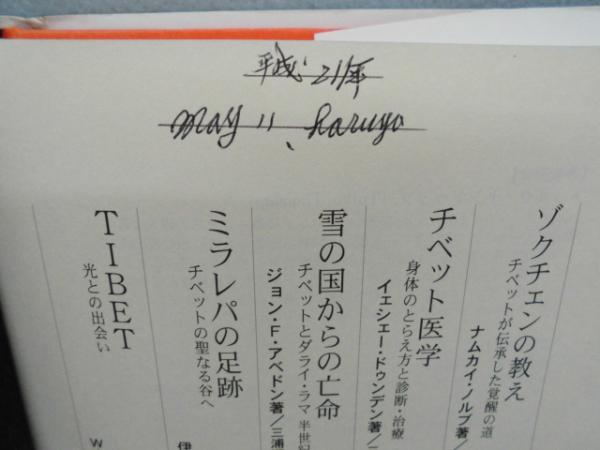 平成21年
May 11、haruyo
ゾクチェンの教え
チベットが伝承した覚醒の道
ナムカイ・ノルブ著/
チベット医学
身体のとらえ方と診断・治療
イェシェー・ドゥンデン著/
雪の国からの亡命
チベットとダライ・ラマ 半世紀
ジョン・F・アベドン著/三浦
ミラレパの足跡
チベットの聖なる谷へ
伊
TIBET
光との出会い
W